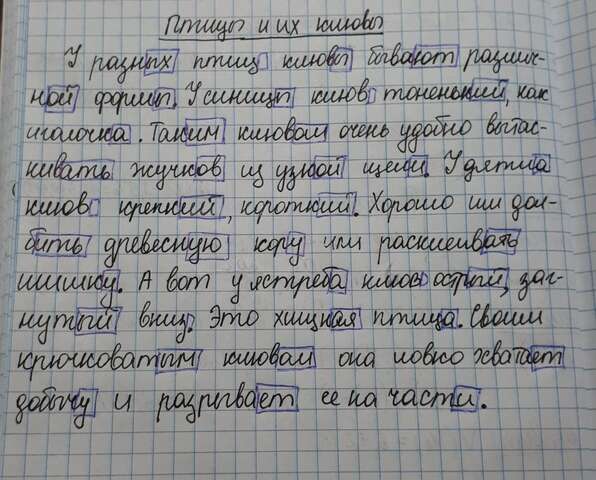 Птицы и их клювы
У разных птиц клювы бывают различ-
ной формы. У синицы клюв тоненький, как
иголочка. Таким клювом очень удобно вытас-
кивать жучков из узкой щели. У дятла
клюв крепкий, короткий. Хорошо им дол-
бить древесную кору или расклевывать
шишку. А вот у ястреба клюв острый, заг-
нутый вниз. Это хищная птица. Своим
крючковатым клювом она ловко хватает
добычу и разрывает ее на части.